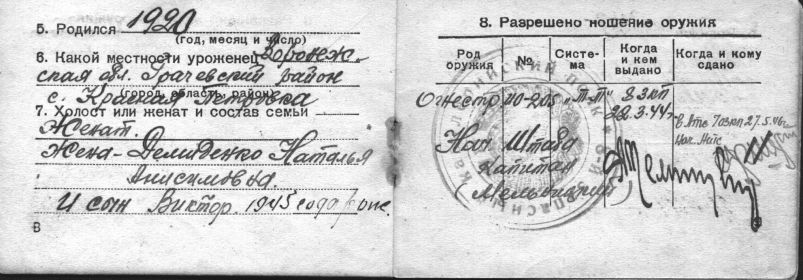 5. Родился 1920
(год, месяц и число)
6. Какой местности уроженец Воронеж-
ская обл. Грачевский район
с. Красная Петровка
(город, область, район)
7. Холост или женат и состав семьи
Женат.
Жена - Демиденко Наталья
Анисимовна.
И сын Виктор. 1945 года рож.
В
8. Разрешено ношение оружия
Род оружия
№
Систе-
ма
Когда
и кем
выдано
Когда и кому
сдано
Огнестр
"ТТ"
22.3.44г
27.5.46г.
Нач. Штаба
Капитан